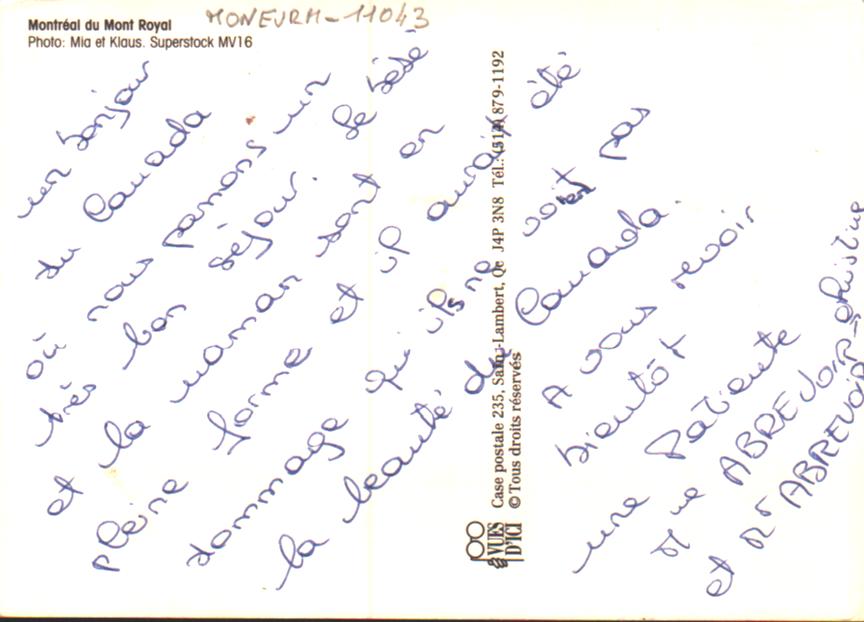 MONEURM-11043
Montréal du Mont Royal
Photo: Mia et Klaus. Superstock MV16
un bonjour
du Canada
où nous passons un
très bon séjour. Le bébé
et la maman sont en
pleine forme et il aurait été
dommage qu'ils ne voient pas
la beauté du Canada.
A vous revoir
bientôt
une Patiente
Mme ABREVOIR christine
et Mr ABREVOIR
Case postale 235, Saint-Lambert, Qc J4P 3N8 Tél.: (514) 879-1192
© Tous droits réservés
100
VUES
D'ICI